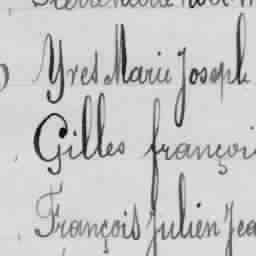 Yves Marie Joseph
Gilles françoi
François Julien Jea